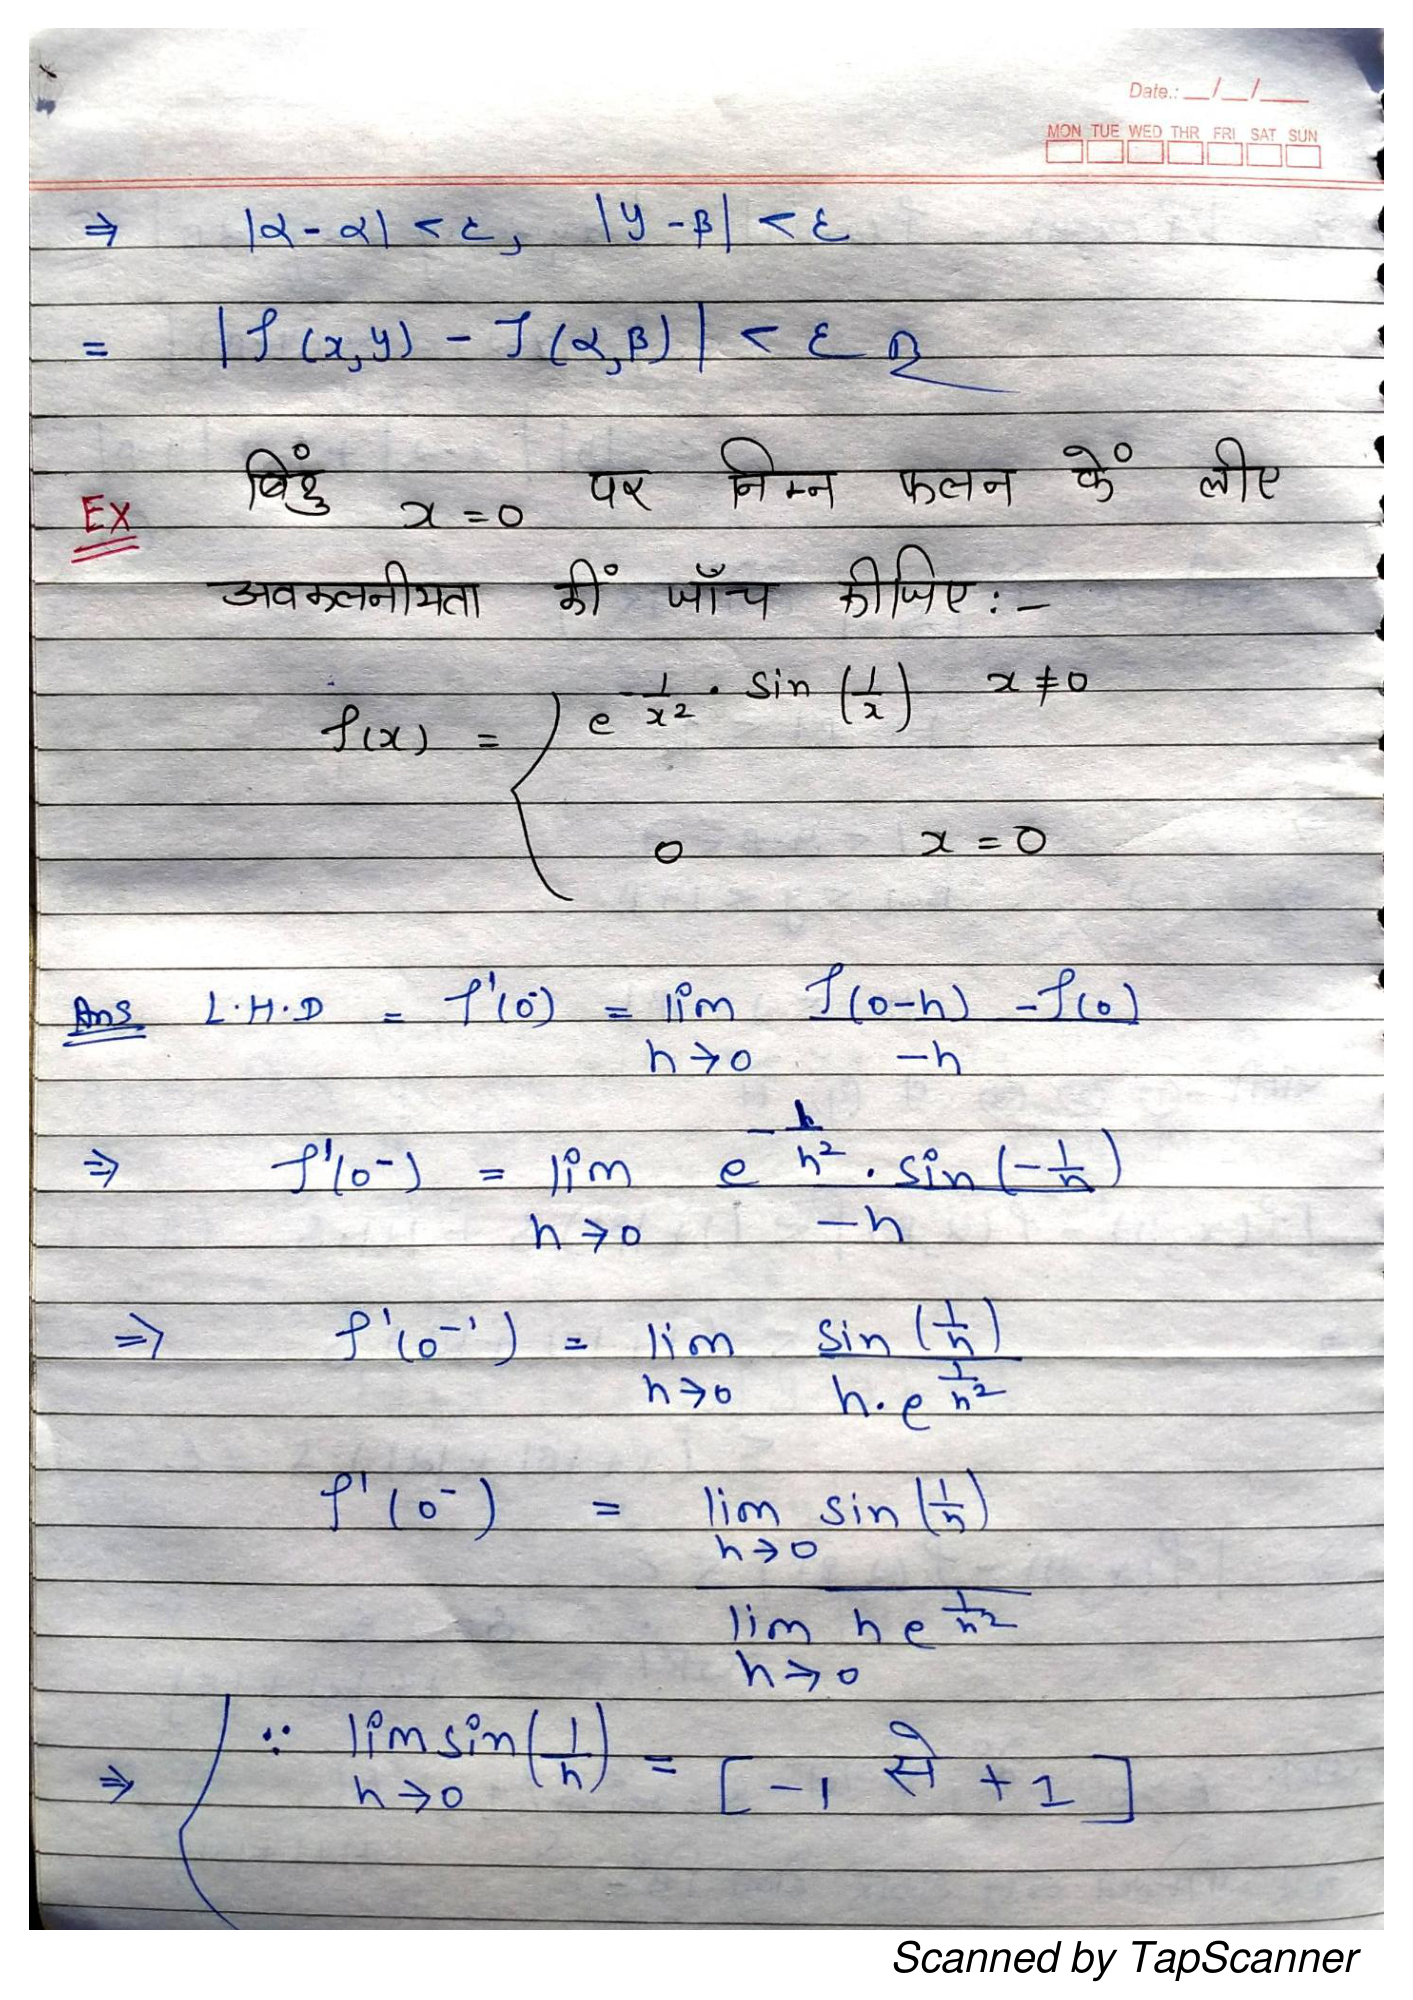 Date.: __/__/___
MON TUE WED THR FRI SAT SUN
⇒ |α - α| < ε, |y - β| < ε
= |f(x,y) - f(α,β)| < ε
Ex बिंदुं x = 0 पर निम्न फलन कें लीए
अवकलनीयता कीं जाँच कीजिए :-
f(x) = { e^{-1/x²} · sin (1/x) x ≠ 0
0 x = 0
Ans L.H.D = f'(0⁻) = lim f(0-h) - f(0)
h→0 -h
⇒ f'(0⁻) = lim e^{-1/h²} · sin(-1/h)
h→0 -h
⇒ f'(0⁻') = lim sin (1/h)
h→0 h·e^{1/h²}
f'(0⁻) = lim sin (1/h)
h→0
lim h e^{1/h²}
h→0
⇒ ( ∵ lim sin(1/h) = [-1 से +1]
h→0
Scanned by TapScanner